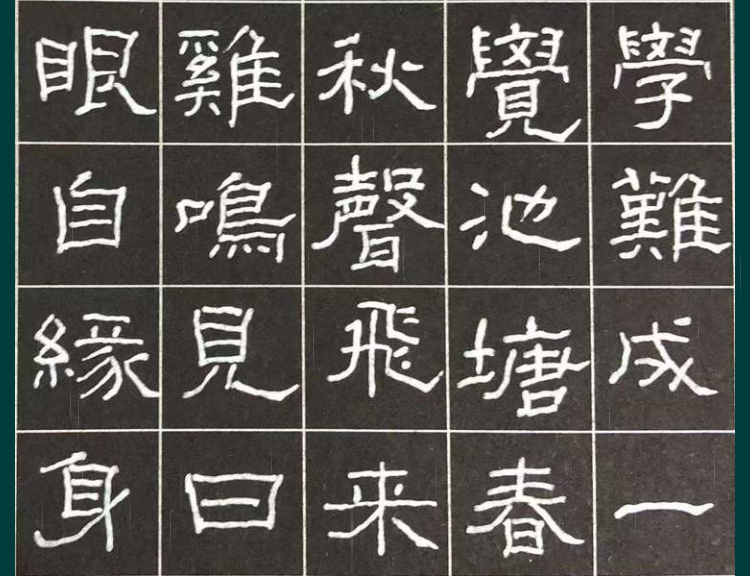 學難成一
覺池塘春
秋聲飛来
雞鳴見日
眼自緣身